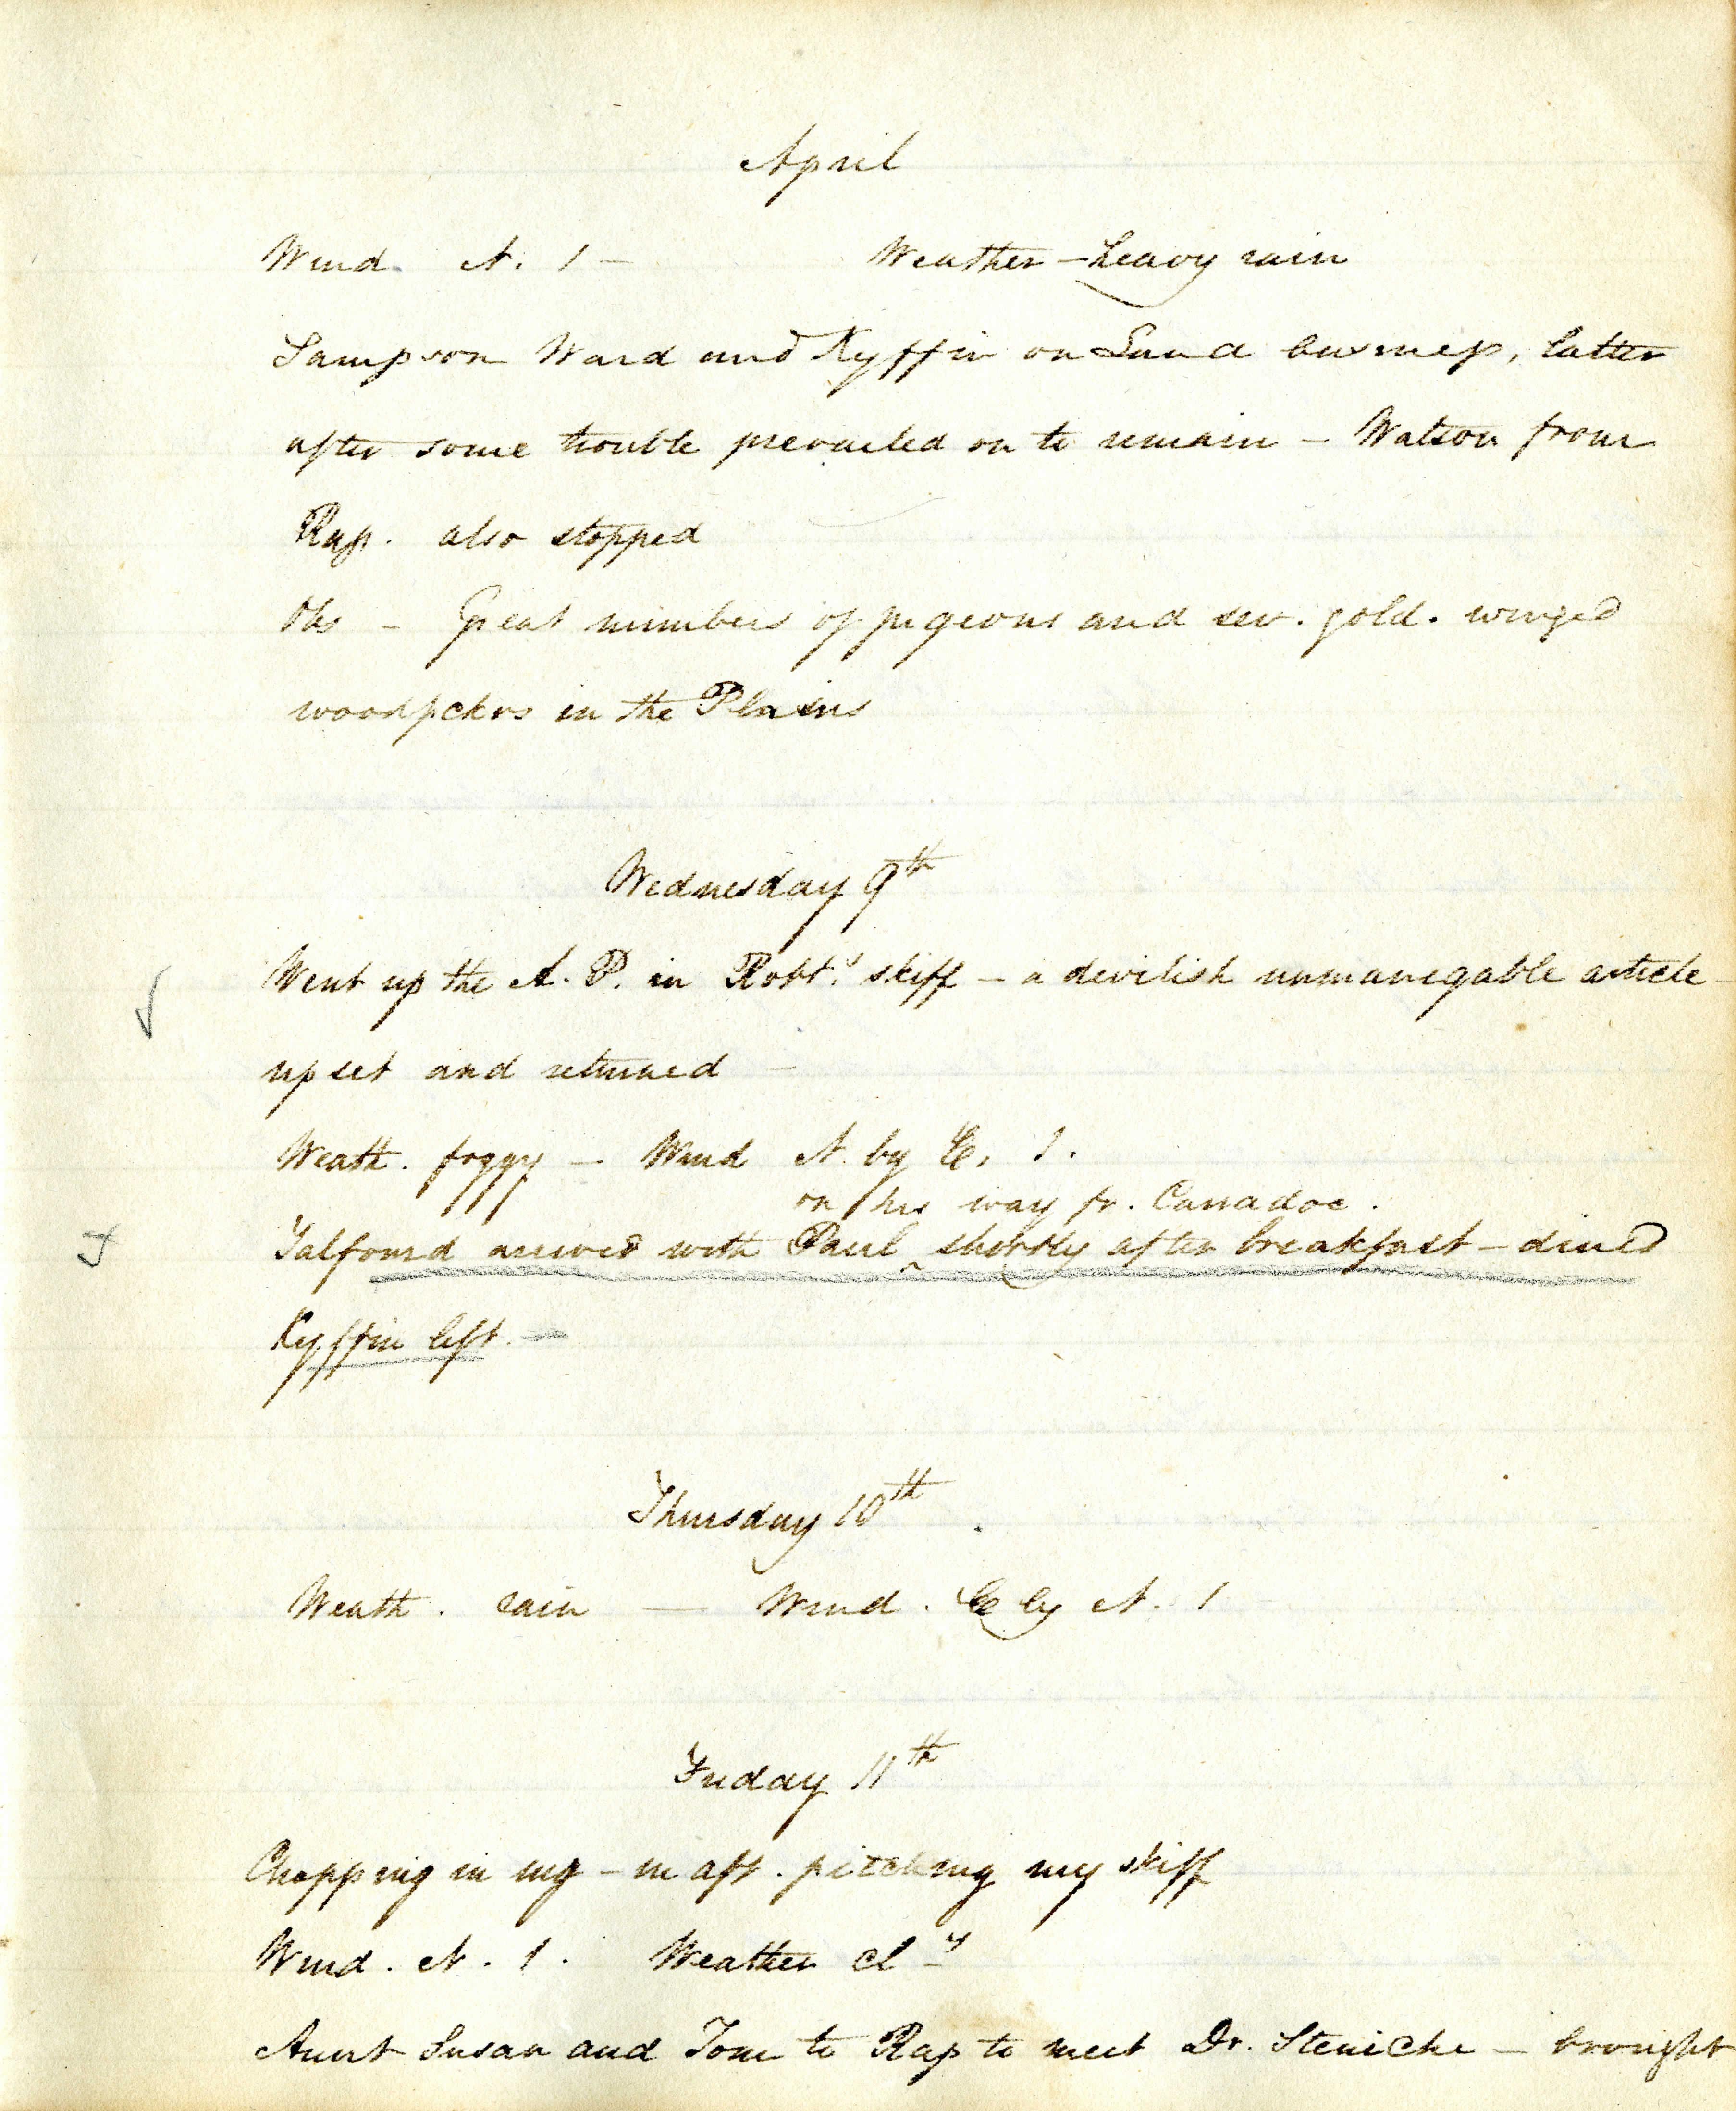 April
Wind. N. 1 — Weather — heavy rain
Sampson Ward and Kyffin on Land business, latter
after some trouble prevailed on to remain — Watson from
Rap. also stopped
Obs — Great numbers of pigeons and sev. gold. winged
woodpckrs in the Plains
Wednesday 9th
Went up the A. P. in Robt.s skiff — a devilish unmanegable article —
upset and returned —
Weath. foggy — Wind N. by E. 1.
on his way fr. Carradoc.
Talfourd arrived with Paul ^ shortly after breakfast — dined
Kyffin left. —
Thursday 10th
Weath. rain — Wind. E by N. 1
Friday 11th
Chopping in mg — in aft. pitching my skiff
Wind. N. 1. Weather cly
Aunt Susan and Tom to Rap to meet Dr. — brought